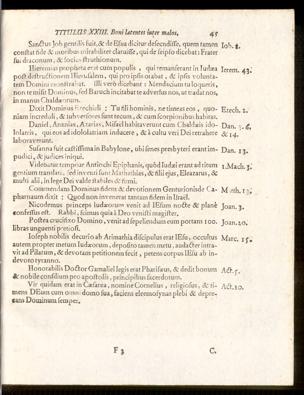 TITULUS XXIII. Boni latentes inter malos. 45
Sanctus Job gentilis fuit, & de Esua dicitur descendisse, quem tamen Job. 8.
constat fide & moribus mirabiliter claruisse, qui de seipso dicebat: Frater
fui draconum, & socius struthionum.
Hieremias propheta erat cum populis, qui remanserant in Judæa Jerem. 43.
post destructionem Hierusalem, qui pro ipsis orabat, & ipsis volunta-
tem Domini monstrabat. Illi vero dicebant: Mendacium tu loqueris,
non te misit Dominus, sed Baruch incitabat te adversum nos, ut tradat nos,
in manus Chaldæorum.
Dixit Dominus Ezechieli: Tu fili hominis, ne timeas eos, quo- Ezech. 2.
niam increduli, & subversores sunt tecum, & cum scorpionibus habitas.
Daniel, Ananias, Azarias, Misael habitaverunt cum Chaldæis ido- Dan. 3. 6,
lolatris, qui eos ad idololatriam inducere, & à cultu veri Dei retrahere & 14.
laboraverunt.
Susanna fuit castissima in Babylone, ubi senes presbyteri erant im- Dan. 13.
pudici, & judices iniqui.
Videbatur tempore Antiochi Epiphanis, quod Judæi erant ad ritum 1. Mach. 3.
gentium translati, sed inventi sunt Mathathias, & filii ejus, Eleazarus, &
multi alii, in lege Dei valde stabiles & firmi.
Commendans Dominus fidem & devotionem Centurionis de Ca- Matth. 13,
pharnaum dixit: Quod non invenerat tantam fidem in Israel.
Nicodemus princeps Judæorum venit ad JEsum nocte & planè Joan. 3.
confessus est. Rabbi, scimus quia à Deo venisti magister.
Postea crucifixo Domino, venit ad sepeliendum eum portans 100. Joan. 20.
libras unguenti pretiosi.
Joseph nobilis decurio ab Arimathia discipulus erat JEsu, occultus Marc. 15.
autem propter metum Judæorum, deposito tamen metu, audacter intra-
vit ad Pilatum, & devotam petitionem fecit, petens corpus JEsu ab in-
devoto tyranno.
Honorabilis Doctor Gamaliel legis erat Pharisæus, & dedit bonum Act. 5.
& nobile consilium pro apostolis, principibus sacerdotum.
Vir quidam erat in Cæsarea, nomine Cornelius, religiosus, & ti- Act. 10.
mens DEum cum omni domo sua, faciens eleemosynas plebi & depre-
cans Dominum semper.
F 3 C.